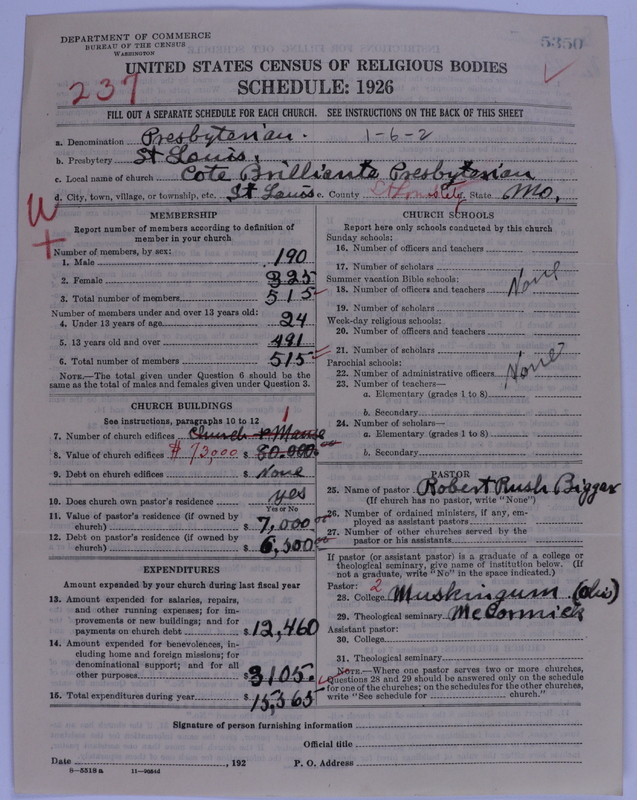 DEPARTMENT OF COMMERCE
BUREAU OF THE CENSUS
WASHINGTON
5350
UNITED STATES CENSUS OF RELIGIOUS BODIES
237
SCHEDULE: 1926
FILL OUT A SEPARATE SCHEDULE FOR EACH CHURCH. SEE INSTRUCTIONS ON THE BACK OF THIS SHEET
a. Denomination Presbyterian. 1-6-2
b. Presbytery St Louis.
c. Local name of church Cote Brilliante Presbyterian
d. City, town, village, or township, etc. St Louis e. County St Louis City State Mo.
W
+
MEMBERSHIP
Report number of members according to definition of
member in your church
Number of members, by sex:
1. Male 190
2. Female 325
3. Total number of members 515
Number of members under and over 13 years old:
4. Under 13 years of age 24
5. 13 years old and over 491
6. Total number of members 515
NOTE.—The total given under Question 6 should be the
same as the total of males and females given under Question 3.
CHURCH BUILDINGS
See instructions, paragraphs 10 to 12
1
7. Number of church edifices Church & Manse
8. Value of church edifices $ 73,000 $ 80.000.00
9. Debt on church edifices $ None
10. Does church own pastor's residence yes
Yes or No
11. Value of pastor's residence (if owned by
church) $ 7,000 00
12. Debt on pastor's residence (if owned by
church) $ 6,500 00
EXPENDITURES
Amount expended by your church during last fiscal year
13. Amount expended for salaries, repairs,
and other running expenses; for im-
provements or new buildings; and for
payments on church debt $ 12,460
14. Amount expended for benevolences, in-
cluding home and foreign missions; for
denominational support; and for all
other purposes $ 3105.
15. Total expenditures during year $ 15,565
CHURCH SCHOOLS
Report here only schools conducted by this church
Sunday schools:
16. Number of officers and teachers
17. Number of scholars
Summer vacation Bible schools:
18. Number of officers and teachers None
19. Number of scholars
Week-day religious schools:
20. Number of officers and teachers
21. Number of scholars
Parochial schools:
22. Number of administrative officers None
23. Number of teachers—
a. Elementary (grades 1 to 8)
b. Secondary
24. Number of scholars—
a. Elementary (grades 1 to 8)
b. Secondary
PASTOR
25. Name of pastor Robert Rush Biggar
(If church has no pastor, write "None")
26. Number of ordained ministers, if any, em-
ployed as assistant pastors
27. Number of other churches served by the
pastor or his assistants
If pastor (or assistant pastor) is a graduate of a college or
theological seminary, give name of institution below. (If
not a graduate, write "No" in the space indicated.)
Pastor: 2
28. College Muskingum (Ohio)
29. Theological seminary McCormick
Assistant pastor:
30. College
31. Theological seminary
NOTE.—Where one pastor serves two or more churches,
Questions 28 and 29 should be answered only on the schedule
for one of the churches; on the schedules for the other churches,
write "See schedule for church."
Signature of person furnishing information
Official title
Date , 192 P. O. Address
8—5518 a 11—9084d